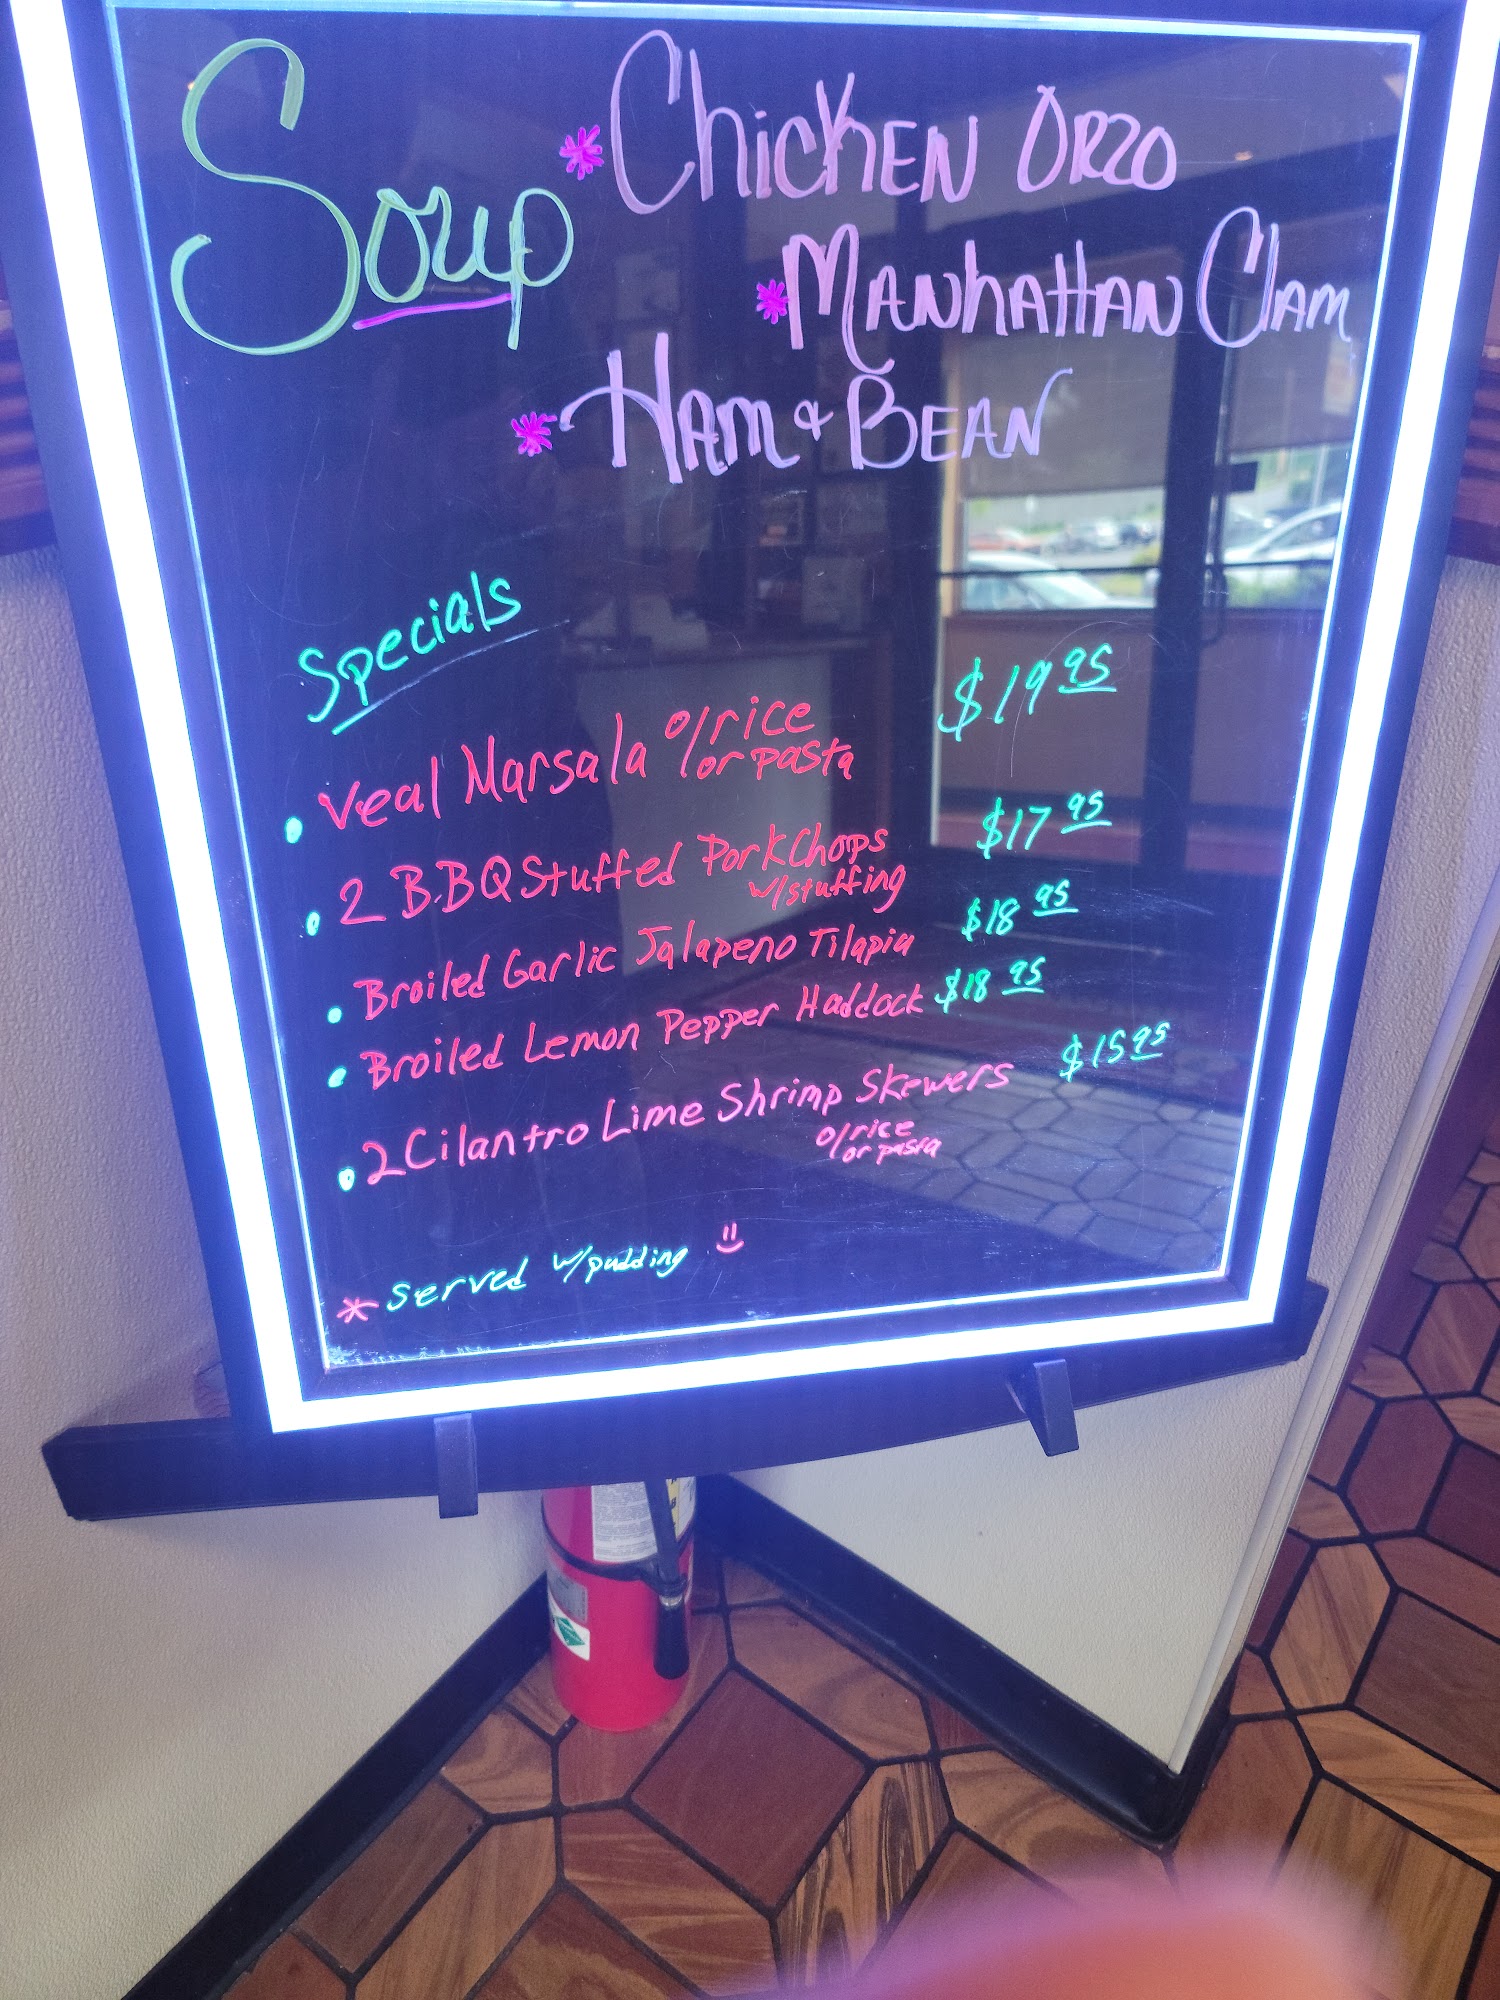 Soup * Chicken Orzo
* Manhattan Clam
* Ham & Bean
Specials
• Veal Marsala o/rice or pasta $19.95
• 2 B.B.Q Stuffed Pork Chops w/stuffing $17.95
• Broiled Garlic Jalapeno Tilapia $18.95
• Broiled Lemon Pepper Haddock $18.95
• 2 Cilantro Lime Shrimp Skewers $15.95
o/rice
or pasta
* served w/pudding